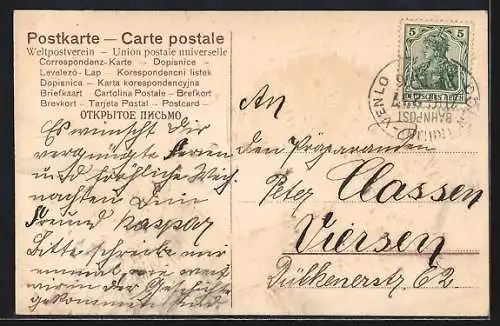 Postkarte — Carte postale
Weltpostverein – Union postale universelle
Correspondenz-Karte – Dopisnice –
Levelező-Lap – Korespondencni listek
Dopisnica – Karta korespondencyjna
Briefkaart – Cartolina Postale – Brefkort
Brevkort – Tarjeta Postal – Postcard –
ОТКРЫТОЕ ПИСЬМО
5 5
DEUTSCHES REICH
VENLO
BAHNPOST
Es wünscht dir
vergnügte Ferien
und fröhliche Weih
nachten Dein
Freund Kaspar
Bitte schreibe mir
einmal, wie weit
wir in der Geschichte
gekommen sind.
An
den Präparanden
Peter Classen
Viersen
Dülkenerstr 62